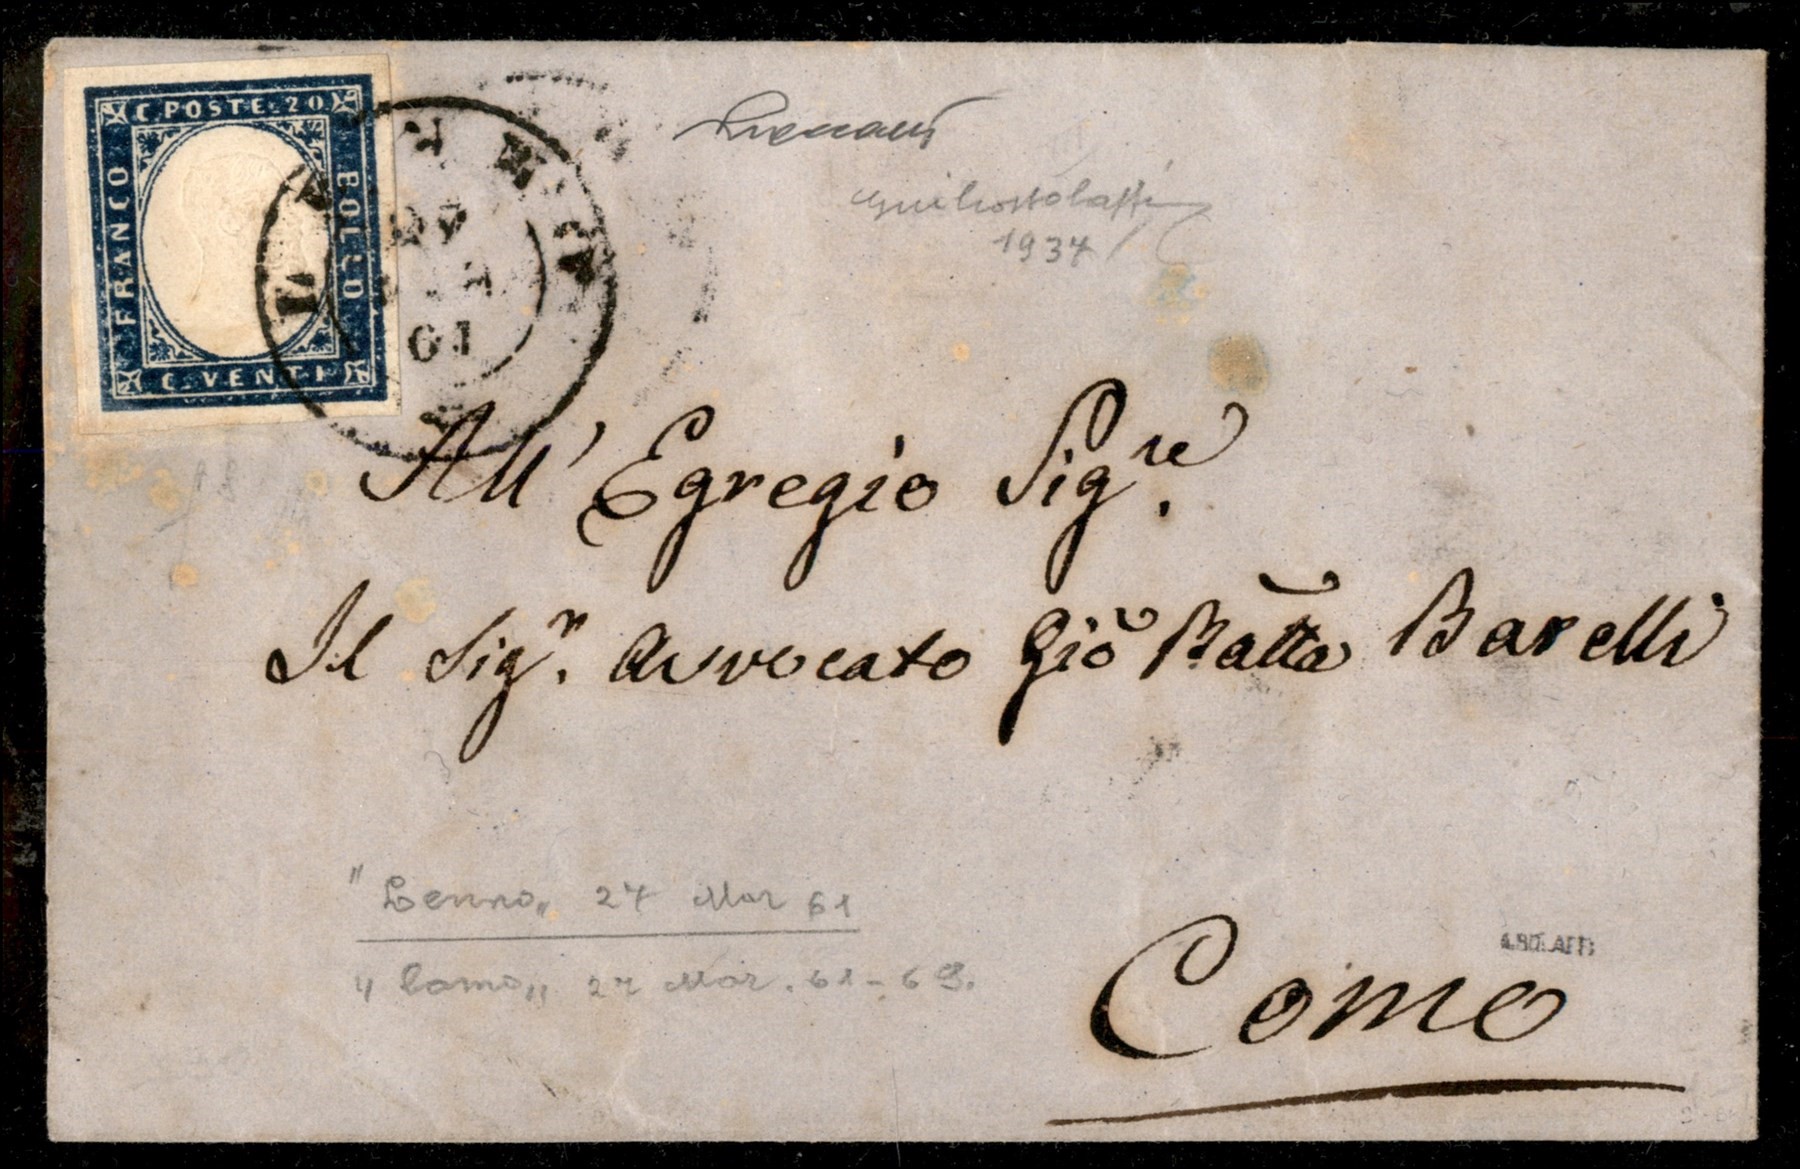 C. POSTE. 20
FRANCO
BOLLO
C. VENTI
61
1934
All' Egregio Sig.re
Il Sig.r Avvocato Giō Batta Barelli
Como
"Lenno" 27 Mar 61
"Como" 27 Mar. 61 -
A.BOLAFFI